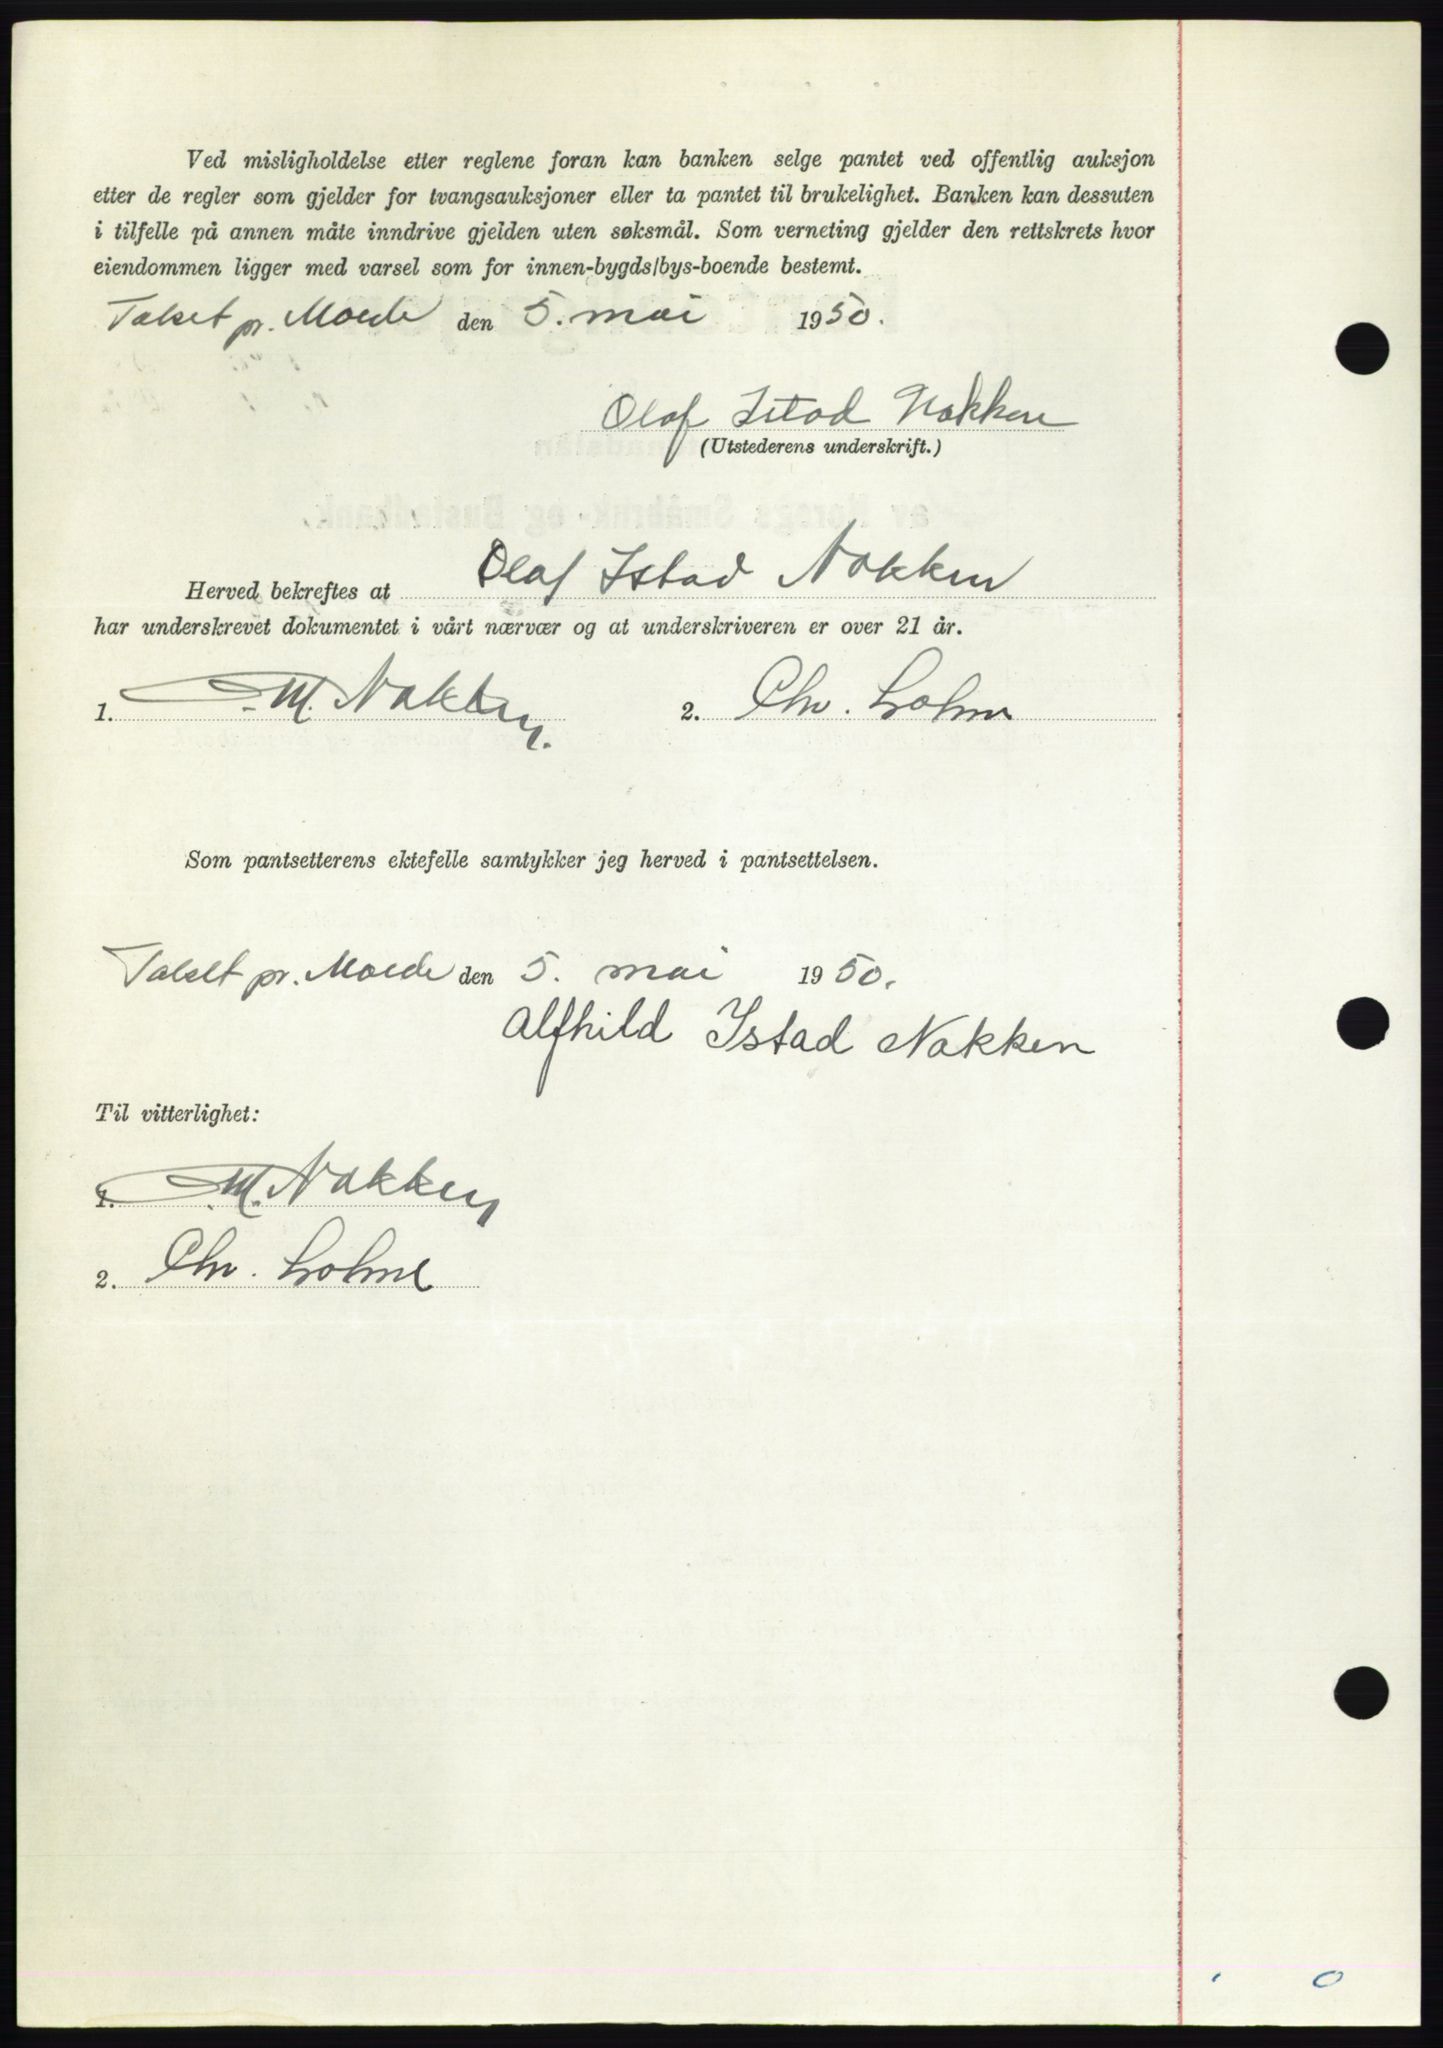 Ved misligholdelse etter reglene foran kan banken selge pantet ved offentlig auksjon
etter de regler som gjelder for tvangsauksjoner eller ta pantet til brukelighet. Banken kan dessuten
i tilfelle på annen måte inndrive gjelden uten søksmål. Som verneting gjelder den rettskrets hvor
eiendommen ligger med varsel som for innen-bygds/bys-boende bestemt.
pr. Molde den 5. mai 1950.
Olaf Istad Nakken
(Utstederens underskrift.)
Herved bekreftes at Olaf Istad Nakken
har underskrevet dokumentet i vårt nærvær og at underskriveren er over 21 år.
1. M. Nakken. 2. Chr.
Som pantsetterens ektefelle samtykker jeg herved i pantsettelsen.
pr. Molde den 5. mai 1950.
Alfhild Istad Nakken
Til vitterlighet:
1. M. Nakken
2. Chr.